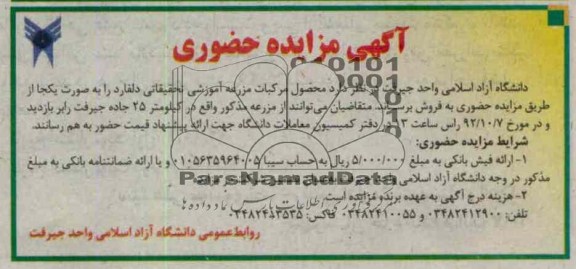 آگهی مزایده حضوری
دانشگاه آزاد اسلامی واحد جیرفت در نظر دارد محصول مرکبات مزرعه آموزشی تحقیقاتی دلفارد را به صورت یکجا از
طریق مزایده حضوری به فروش برساند. متقاضیان می‌توانند از مزرعه مذکور واقع در کیلومتر ۲۵ جاده جیرفت رابر بازدید
و در مورخ ۹۲/۱۰/۷ راس ساعت ۱۳ در دفتر کمیسیون معاملات دانشگاه جهت ارائه پیشنهاد قیمت حضور به هم رسانند.
شرایط مزایده حضوری:
۱- ارائه فیش بانکی به مبلغ ۵/۰۰۰/۰۰۰ ریال به حساب سیبا ۰۱۰۵۶۳۵۹۶۴۰۰۵ و یا ارائه ضمانتنامه بانکی به مبلغ
مذکور در وجه دانشگاه آزاد اسلامی
ParsNamadData
۲- هزینه درج آگهی به عهده برنده مزایده است
تلفن: ۰۳۴۸۲۴۱۲۹۰۰ و ۰۳۴۸۲۴۱۰۰۵۵ فاکس: ۰۳۴۸۲۴۵۳۵۳۵
روابط‌عمومی دانشگاه آزاد اسلامی واحد جیرفت